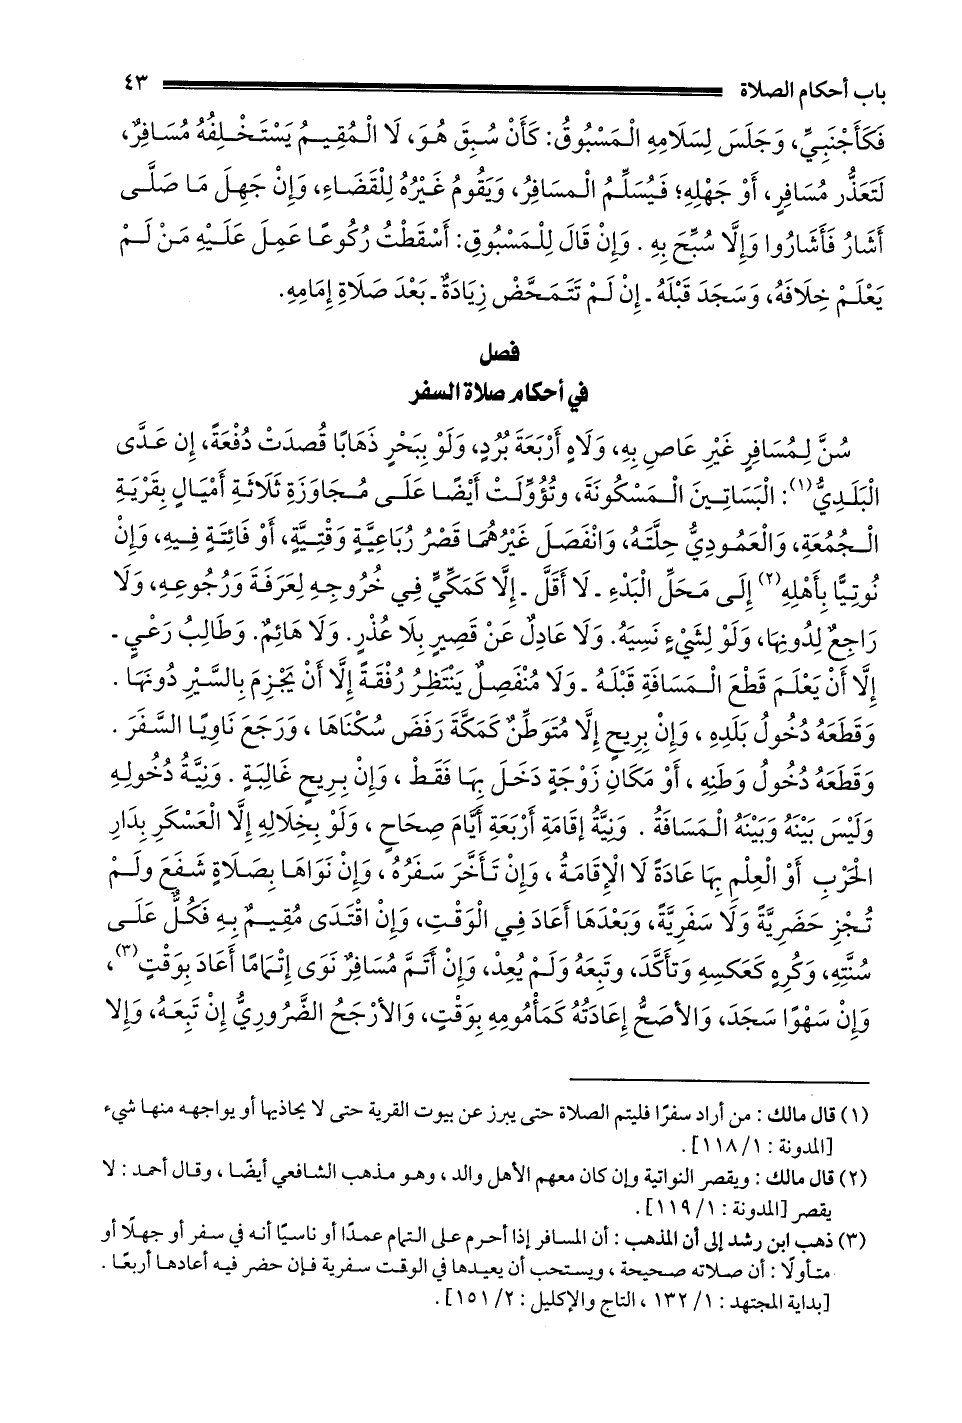 باب أحكام الصلاة ٤٣
فَكَأَجْنَبِيٍّ، وَجَلَسَ لِسَلَامِهِ الْمَسْبُوقُ: كَأَنْ سُبِقَ هُوَ، لَا الْمُقِيمُ يَسْتَخْلِفُهُ مُسَافِرٌ،
لِتَعَذُّرِ مُسَافِرٍ، أَوْ جَهْلِهِ؛ فَيُسَلِّمُ الْمسَافِرُ، وَيَقُومُ غَيْرُهُ لِلْقَضَاءِ، وَإِنْ جَهِلَ مَا صَلَّى
أَشَارَ فَأَشَارُوا وَإِلَّا سُبِّحَ بِهِ . وَإِنْ قَالَ لِلْمَسْبُوقِ: أَسْقَطْتُ رُكُوعًا عَمِلَ عَلَيْهِ مَنْ لَمْ
يَعْلَمْ خِلَافَهُ، وَسَجَدَ قَبْلَهُ ـ إِنْ لَمْ تَتَمَحَّضْ زِيَادَةٌ ـ بَعْدَ صَلَاةِ إِمَامِهِ.
فصل
في أحكام صلاة السفر
سُنَّ لِمُسَافِرٍ غَيْرِ عَاصٍ بِهِ، وَلَاهٍ أَرْبَعَةَ بُرُدٍ، وَلَوْ بِبَحْرٍ ذَهَابًا قُصِدَتْ دُفْعَةً، إِن عَدَّى
الْبَلَدِيُّ(١): الْبَسَاتِينَ الْمَسْكُونَةَ، وَتُؤُوِّلَتْ أَيْضًا عَلَى مُجَاوَزَةِ ثَلَاثَةِ أَمْيَالٍ بِقَرْيَةِ
الْجُمُعَةِ، وَالْعَمُودِيُّ حِلَّتَهُ، وَانْفَصَلَ غَيْرُهُمَا قَصْرُ رُبَاعِيَّةٍ وَقْتِيَّةٍ، أَوْ فَائِتَةٍ فِيهِ، وَإِنْ
نُوتِيًّا بِأَهْلِهِ(٢) إِلَى مَحَلِّ الْبَدْءِ ـ لَا أَقَلَّ ـ إِلَّا كَمَكِّيٍّ فِي خُرُوجِهِ لِعَرَفَةَ وَرُجُوعِهِ، وَلَا
رَاجِعٌ لِدُونِهَا، وَلَوْ لِشَيْءٍ نَسِيَهُ. وَلَا عَادِلٌ عَنْ قَصِيرٍ بِلَا عُذْرٍ. وَلَا هَائِمٌ. وَطَالِبُ رَعْيٍ ـ
إِلَّا أَنْ يَعْلَمَ قَطْعَ الْمَسَافَةِ قَبْلَهُ ـ وَلَا مُنْفَصِلٌ يَنْتَظِرُ رُفْقَةً إِلَّا أَنْ يَجْزِمَ بِالسَّيْرِ دُونَهَا .
وَقَطَعَهُ دُخُولُ بَلَدِهِ ، وَإِنْ بِرِيحٍ إِلَّا مُتَوَطِّنٌ كَمَكَّةَ رَفَضَ سُكْنَاهَا ، وَرَجَعَ نَاوِيًا السَّفَرَ .
وَقَطَعَهُ دُخُولُ وَطَنِهِ ، أَوْ مَكَانِ زَوْجَةٍ دَخَلَ بِهَا فَقَطْ ، وَإِنْ بِرِيحٍ غَالِبَةٍ . وَنِيَّةُ دُخُولِهِ
وَلَيْسَ بَيْنَهُ وَبَيْنَهُ الْمَسَافَةُ . وَنِيَّةُ إِقَامَةِ أَرْبَعَةِ أَيَّامٍ صِحَاحٍ ، وَلَوْ بِخِلَالِهِ إِلَّا الْعَسْكَرِ بِدَارِ
الْحَرْبِ أَوْ الْعِلْمِ بِهَا عَادَةً لَا الْإِقَامَةُ ، وَإِنْ تَأَخَّرَ سَفَرُهُ ، وَإِنْ نَوَاهَا بِصَلَاةٍ شَفَعَ وَلَمْ
تُجْزِ حَضَرِيَّةً وَلَا سَفَرِيَّةً، وَبَعْدَهَا أَعَادَ فِي الْوَقْتِ، وَإِنْ اقْتَدَى مُقِيمٌ بِهِ فَكُلٌّ عَلَى
سُنَّتِهِ، وَكُرِهَ كَعَكْسِهِ وَتَأَكَّدَ، وتَبِعَهُ وَلَمْ يُعِدْ، وَإِنْ أَتَمَّ مُسَافِرٌ نَوَى إِتْمَامًا أَعَادَ بِوَقْتٍ(٣)،
وَإِنْ سَهْوًا سَجَدَ، وَالأَصَحُّ إِعَادَتُهُ كَمَأْمُومِهِ بِوَقْتٍ، وَالأَرْجَحُ الضَّرُورِيُّ إِنْ تَبِعَهُ، وَإِلا
(١) قال مالك : من أراد سفرًا فليتم الصلاة حتى يبرز عن بيوت القرية حتى لا يحاذيها أو يواجهه منها شيء
[المدونة : ١/ ١١٨].
(٢) قال مالك : ويقصر النواتية وإن كان معهم الأهل والد ، وهو مذهب الشافعي أيضًا ، وقال أحمد : لا
يقصر [المدونة : ١/ ١١٩].
(٣) ذهب ابن رشد إلى أن المذهب : أن المسافر إذا أحرم على التمام عمدًا أو ناسيًا أنه في سفر أو جهلًا أو
متأولًا : أن صلاته صحيحة ، ويستحب أن يعيدها في الوقت سفرية فإن حضر فيه أعادها أربعًا .
[بداية المجتهد : ١/ ١٣٢ ، التاج والإكليل : ٢/ ١٥١].